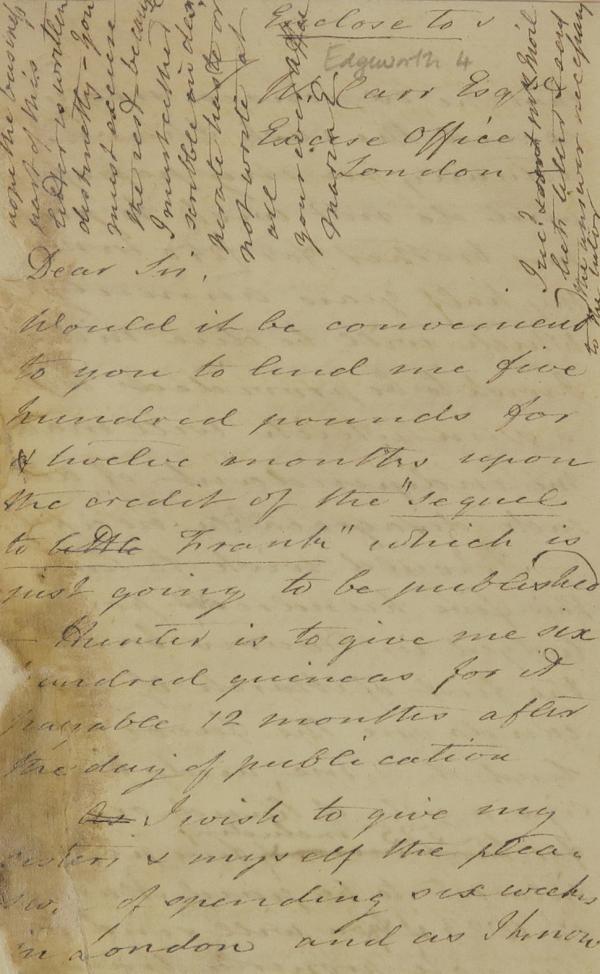 Enclose to
Edgworth 4
W. Carr Esqr
Excise Office
London
hope the business
part of this
letter is written
distinctly - you
must excuse
the rest because
I must either
scribble in des
perate haste or
not write at
all
your ever affec
Maria E
I recd
both letter & send
the answer necessary
to the
Dear Sir,
Would it be convenient
to you to lend me five
hundred pounds for
twelve months upon
the credit of the "sequel
to little Frank" which is
just going to be published
- Hunter is to give me six
hundred guineas for it
payable 12 months after
the day of publication
As I wish to give my
sisters & myself the plea-
sure of spending six weeks
in London and as I know